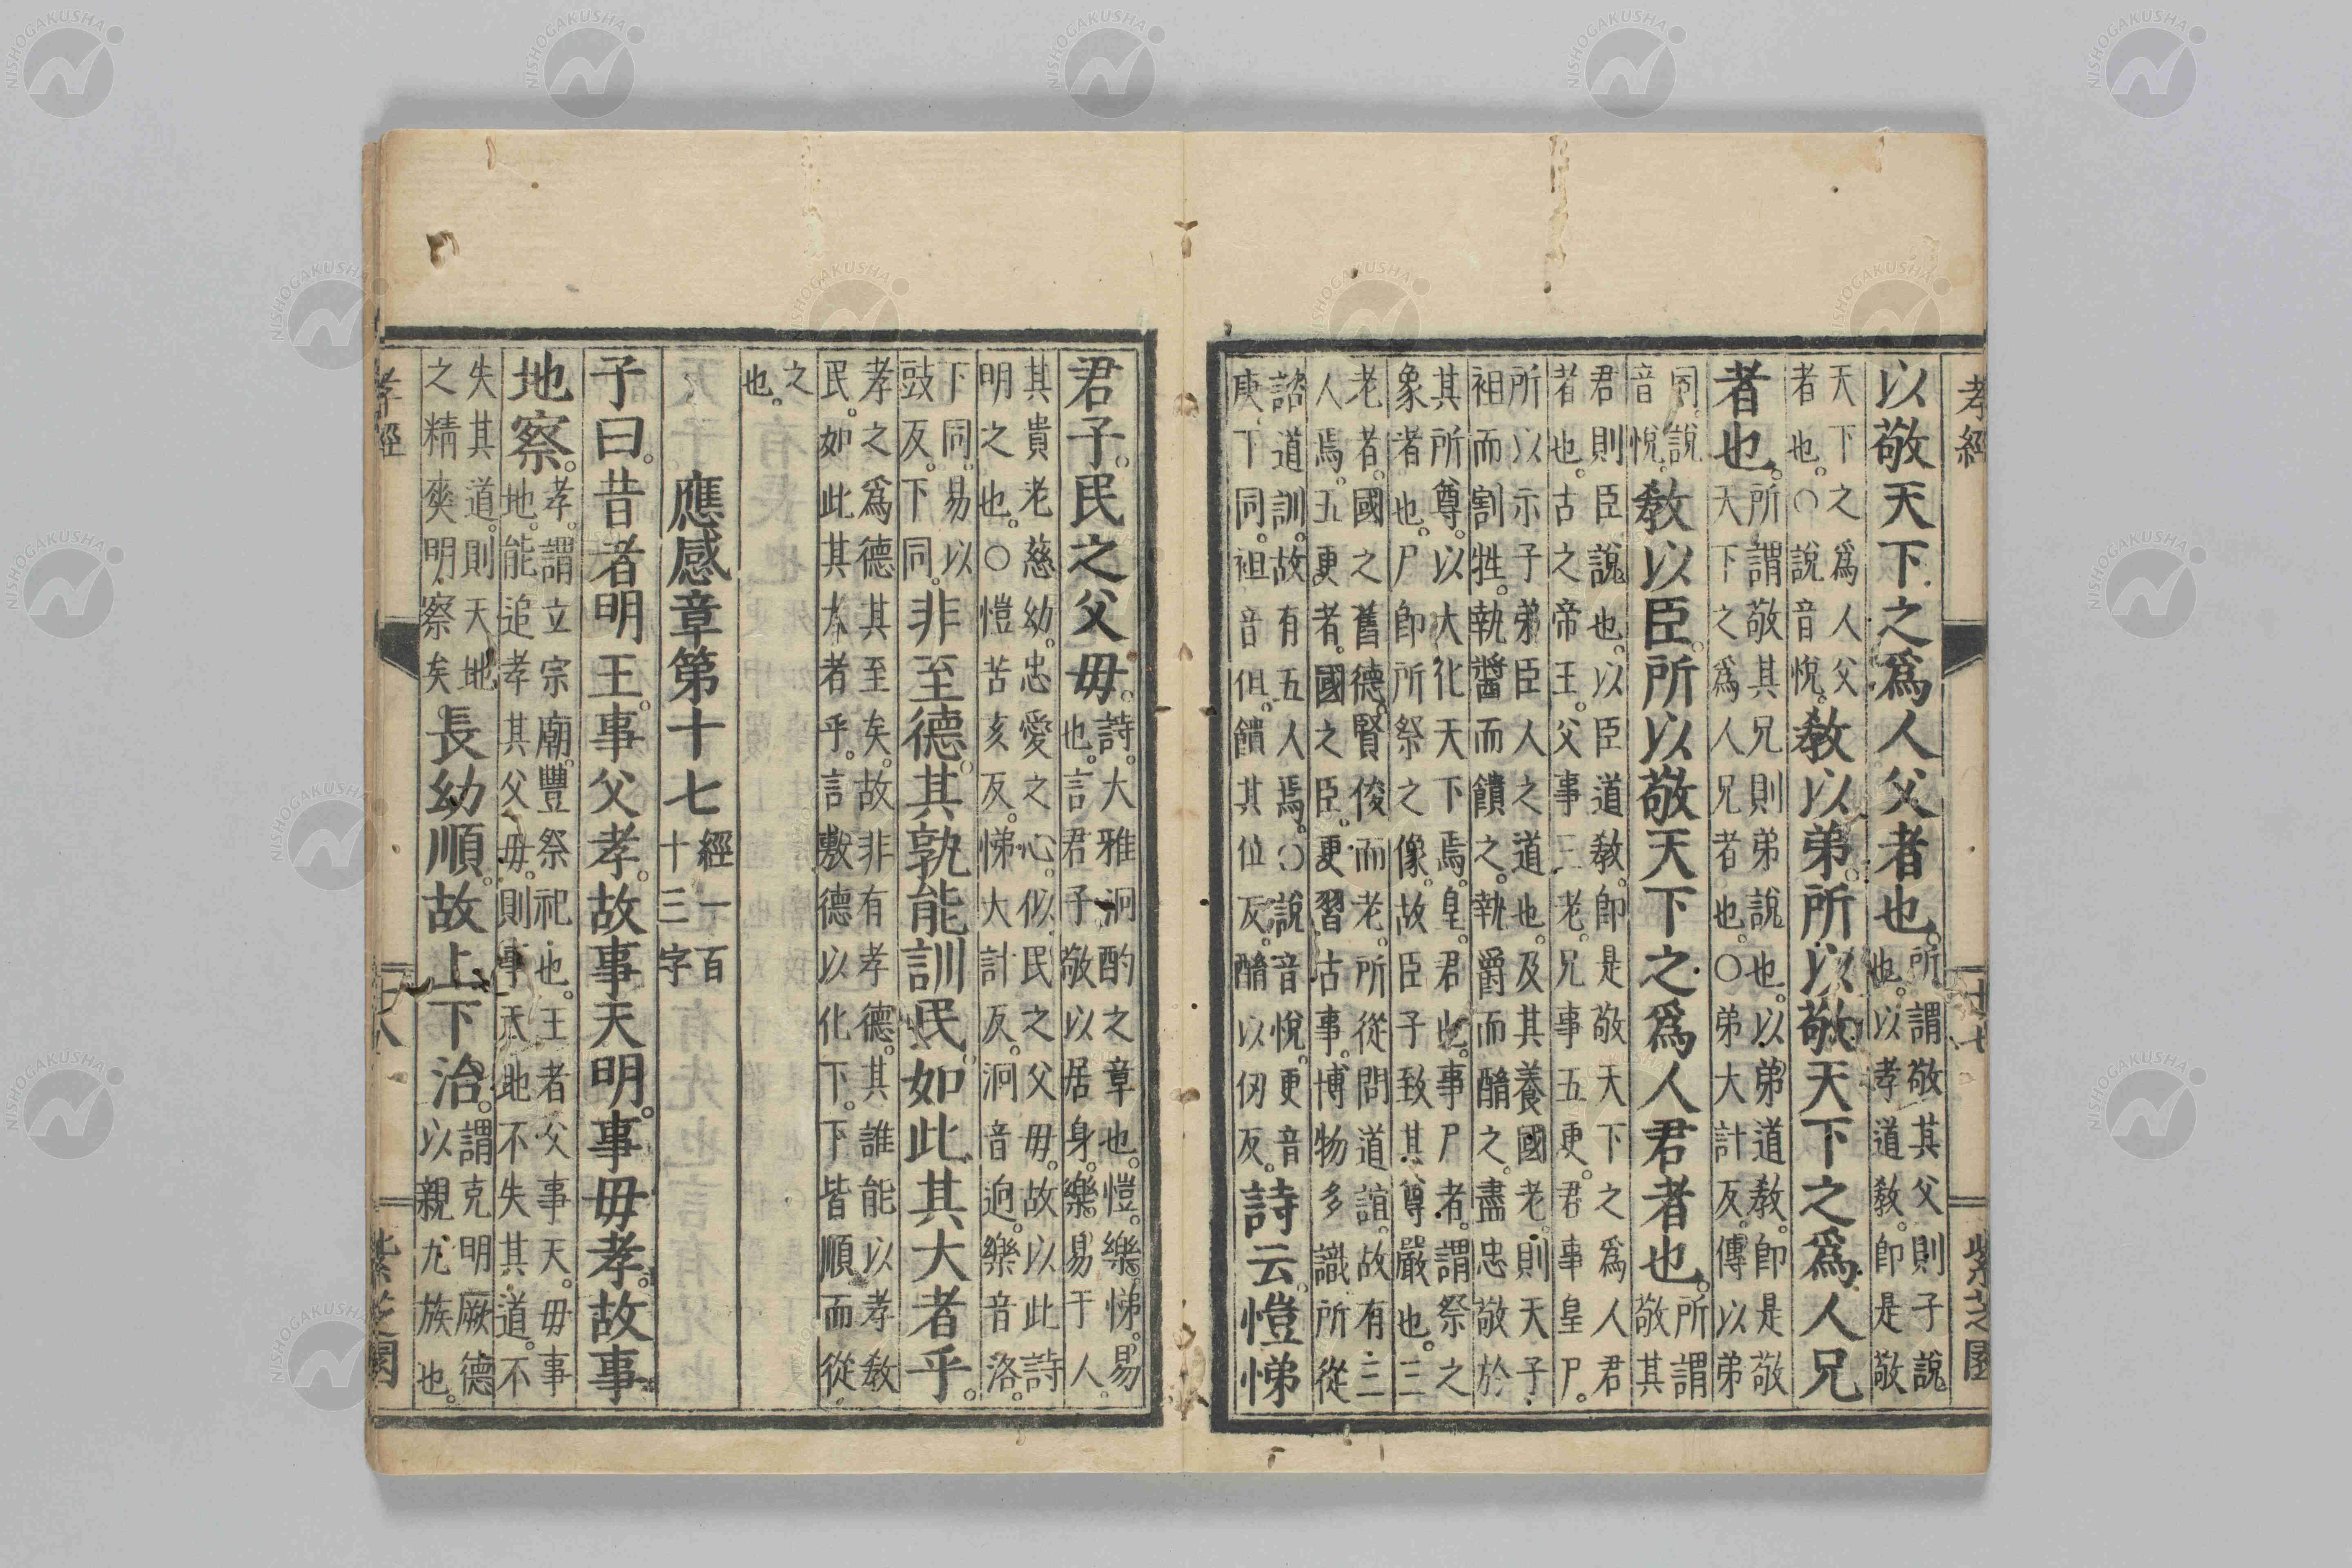 孝經 十七 紫芝園
以敬天下之爲人父者也。所謂敬其父則子說
也。以孝道敎。即是敬
天下之爲人父
者也。○說音悅。敎以弟。所以敬天下之爲人兄
者也。所謂敬其兄則弟說也。以弟道敎。即是敬
天下之爲人兄者也。○弟大計反。傳以弟
同。說
音悅。敎以臣。所以敬天下之爲人君者也。所謂
敬其
君則臣說也。以臣道敎。即是敬天下之爲人君
者也。古之帝王。父事三老。兄事五更。君事皇尸。
所以示子弟臣人之道也。及其養國老。則天子
袒而割牲。執醬而饋之。執爵而酳之。盡忠敬於
其所尊。以大化天下焉。皇。君也。事尸者。謂祭之
象者也。尸即所祭之像。故臣子致其尊嚴也。三
老者。國之舊德。賢俊而老。所從問道誼。故有三
人焉。五更者。國之臣。更習古事。博物多識。所從
諮道訓。故有五人焉。○說音悅。更音
庚。下同。袒音但。饋其位反。酳以仞反。詩云。愷悌
君子。民之父毋。詩。大雅泂酌之章也。愷。樂。悌。易
也。言君子敬以居身。樂易于人。
其貴老慈幼。忠愛之心。似民之父毋。故以此詩
明之也。○愷苦亥反。悌大計反。泂音迥。樂音洛。
下同。易以
豉反。下同。非至德。其孰能訓民。如此其大者乎。
孝之爲德其至矣。故非有孝德。其誰能以孝敎
民。如此其大者乎。言敷德以化下。下皆順而從
之
也。
應感章第十七 經一百
十三字
子曰。昔者明王。事父孝。故事天明。事毋孝。故事
地察。孝。謂立宗廟。豐祭祀也。王者父事天。毋事
地。能追孝其父毋。則事天地不失其道。不
失其道。則天地
之精爽明察矣。長幼順。故上下治。謂克明厥德
以親九族也。
孝經 十八 紫芝園
NISHOGAKUSHA